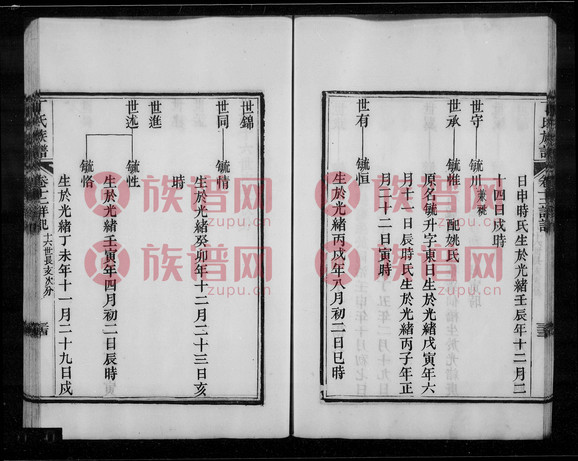 日申時氏生於光緒壬辰年十二月二
十四日戌時
世守 毓川 兼祧
世承 毓惟 配姚氏
原名毓升字東日生於光緒戊寅年六
月十八日辰時氏生於光緒丙子年正
月二十二日寅時
世有 毓恒
生於光緒丙戌年八月初二日巳時
世錦
世同 毓情
生於光緒癸卯年十二月二十三日亥
時
世進
世述 毓性
生於光緒壬寅年四月初二日辰時
毓恪
生於光緒丁未年十一月二十九日戌
氏族譜
十六世長支次分
族谱网
zupu.cn
族谱网
zupu.cn
族谱网
zupu.cn
族谱网
zupu.cn
族谱网
zupu.cn
族谱网
zupu.cn